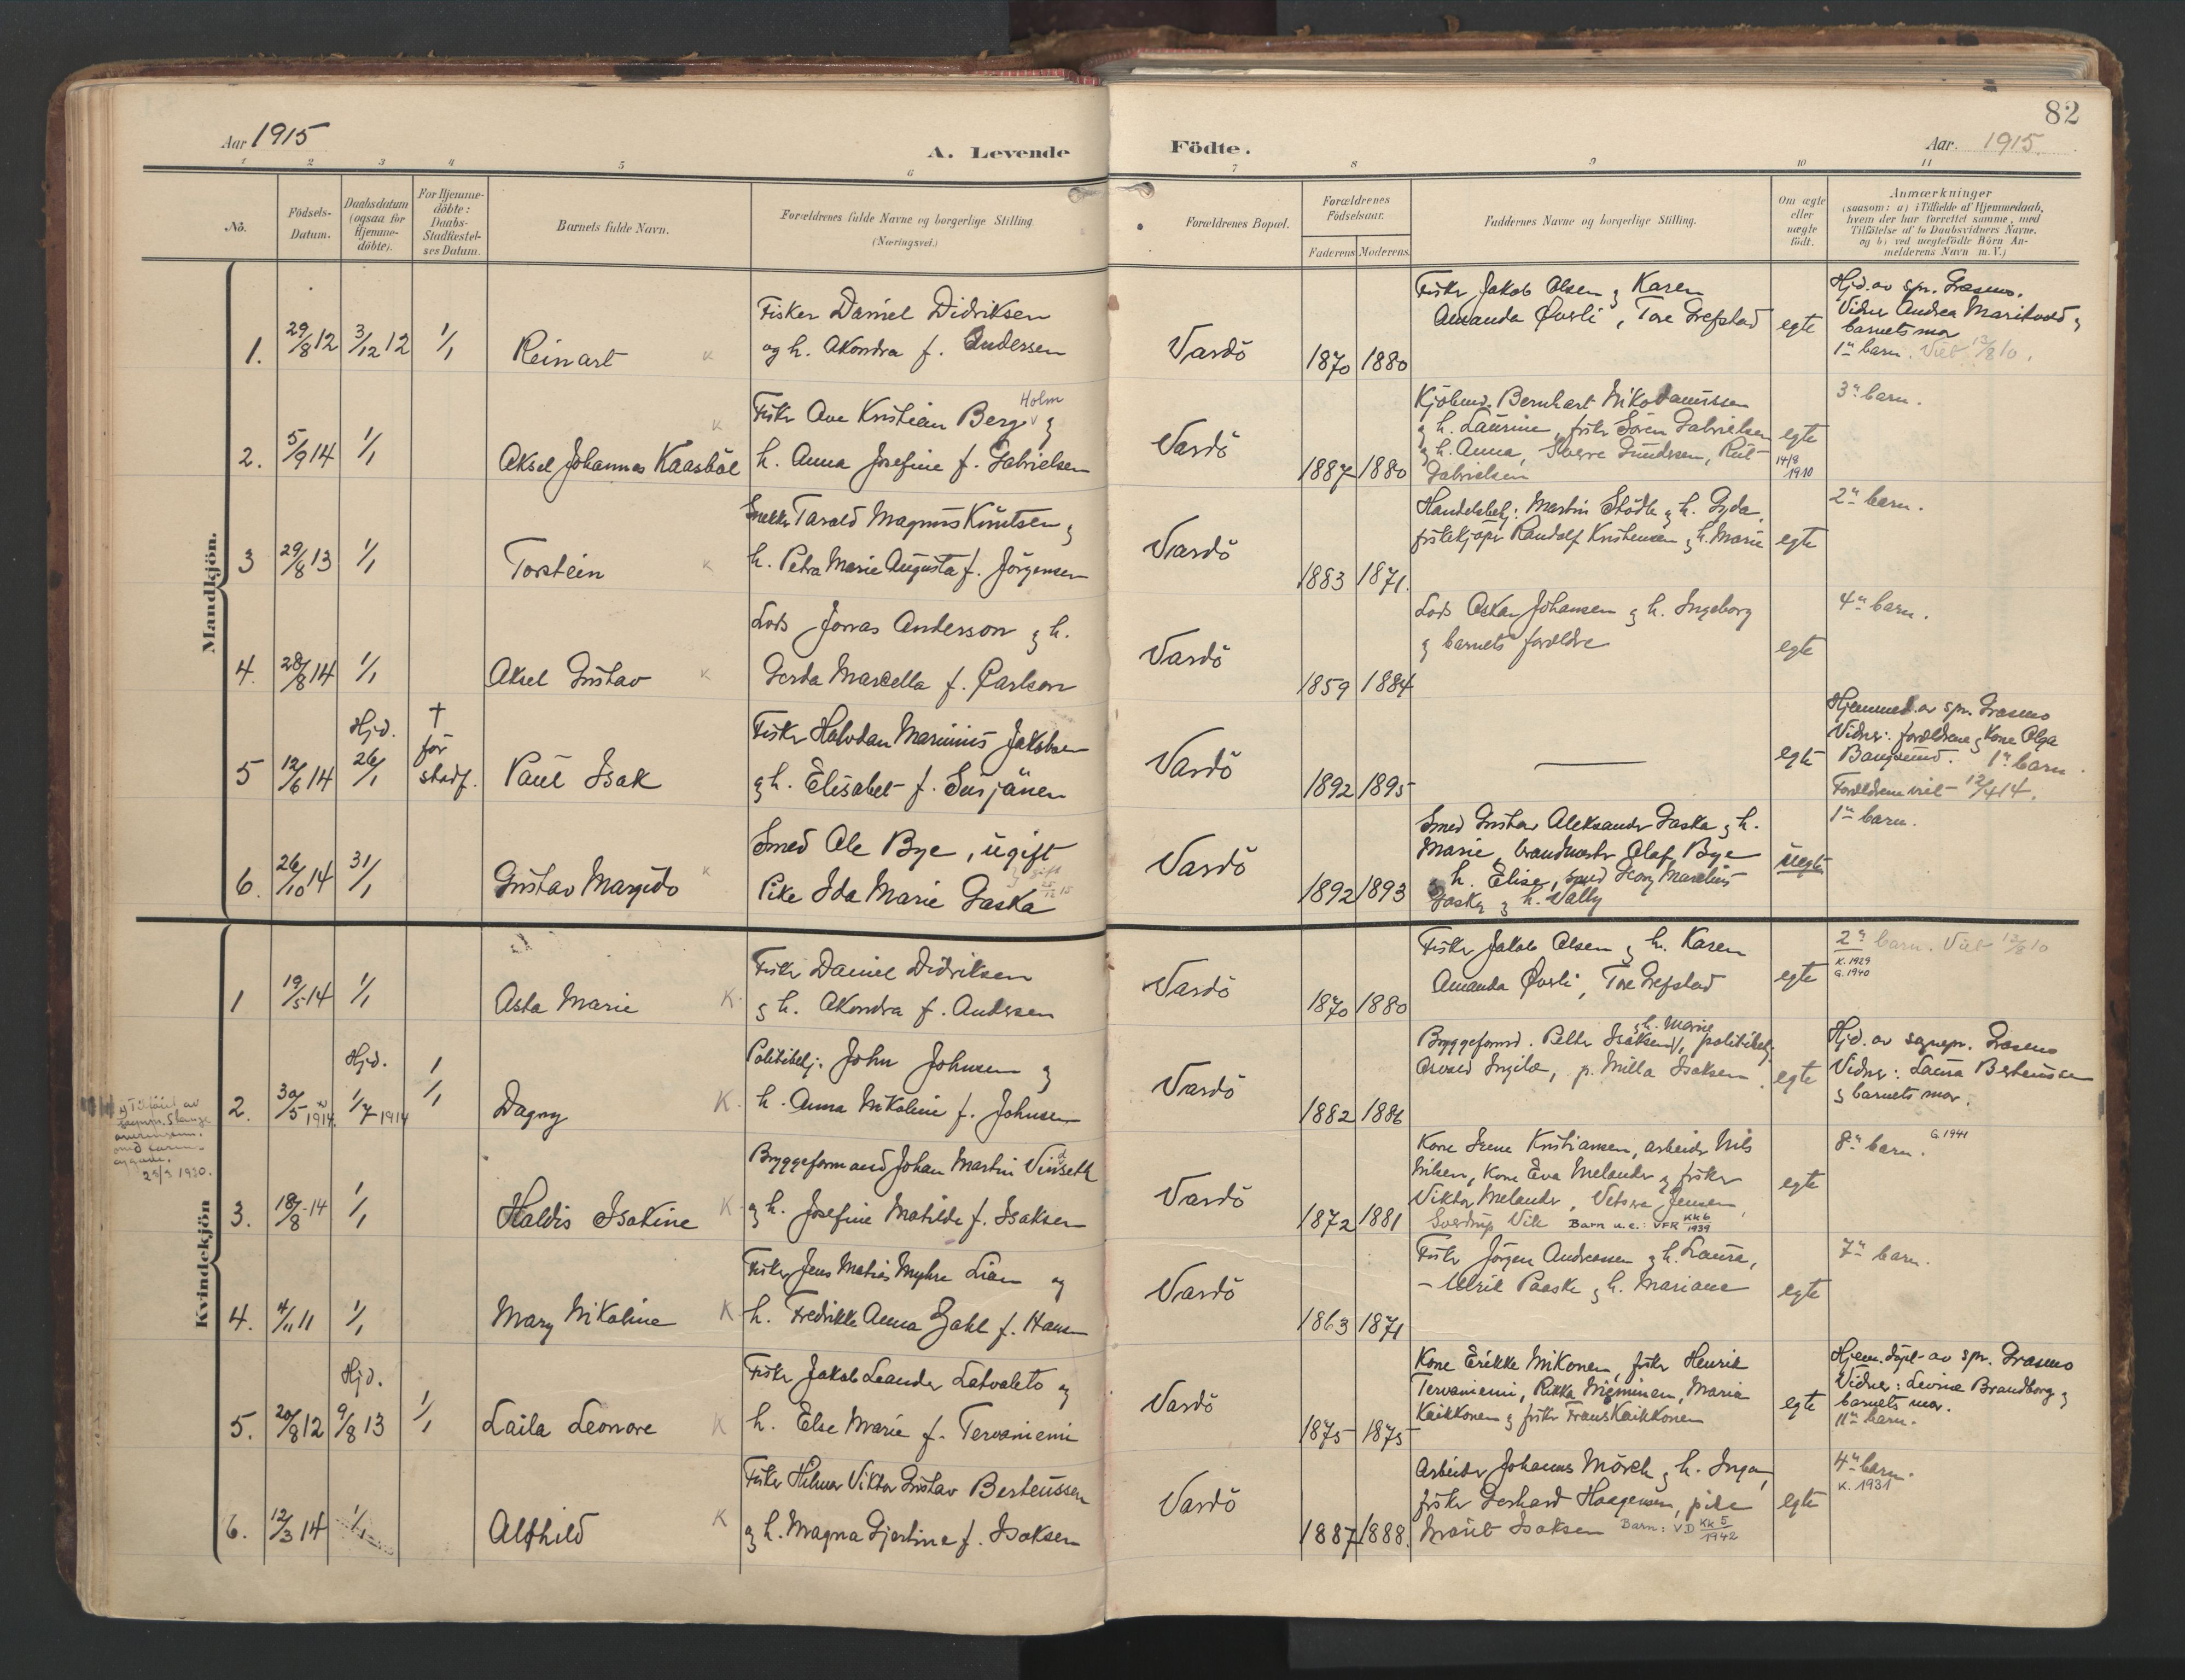 82
Aar 1915
A. Levende
Födte.
Aar. 1915.
1 2 3 4 5 6 7 8 9 10 11
No.
Födsels-
Datum.
Daabsdatum
(ogsaa for
Hjemme-
döbte).
For Hjemme-
döbte:
Daabs-
Stadfæstel-
ses Datum.
Barnets fulde Navn.
Forældrenes fulde Navne og borgerlige Stilling
(Næringsvei.)
Forældrenes Bopæl.
Forældrenes
Födselsaar.
Faderens Moderens
Faddernes Navne og borgerlige Stilling.
Om ægte
eller
uægte
födt.
Anmærkninger
(saasom: a) i Tilfælde af Hjemmedaab,
hvem der har forrettet samme, med
Tilföielse af to Daabsvidners Navne,
og b) ved uægtefödte Börn An-
melderens Navn m.V.)
Mandkjön.
1. 29/8 12 3/12 12 1/1 Reinart K
Fisker Daniel Didriksen
og h. Akondra f. Andersen
Vardö 1870 1880
Fisker Jakob Olsen & Karen
Amanda Øverli, Tore Grefstad
egte
Hjd. av spr. Grasmo.
Vidner Andrea &
barnets mor
1ste barn. Viet 13/8 10.
2. 5/9 14 1/1 Aksel Johannes Kaasböl K
Holm
Fisker Ove Kristian Berg v &
h. Anna Josefine f. Gabrielsen
Vardö 1887 1880
Kjöbmd. Bernhart Nikodamissen
& h. Laurine, fisker Sören Gabrielsen
& h. Anna, Sverre Gundersen, Rut
Gabrielsen
egte
14/8
1910
3e barn.
3 29/8 13 1/1 Torstein K
Snekker Tarald Magnus Knutsen &
h. Petra Marie Augusta f. Jörgensen
Vardö 1883 1871.
Handelsbetj: Martin Stödle & h. Gyda,
fiskekjöper Randolf Kristensen & h. Marie
egte
2et barn.
4. 28/8 14 1/1 Aksel Gustav K
Lods Jonas Anderson & h.
Gerda Marcella f. Carlson
Vardö 1859 1884
Lods Oskar Johansen & h. Ingeborg
& barnets forældre
egte
4e barn.
5 12/6 14 Hjd. 26/1 † för stadf. Paul Isak
Fisker Halvdan Marinius Jakobsen
& h. Elisabet f. Susjänen
Vardö 1892 1895
egte
Hjemmed. av spr. Grasmo
Vidner: forældrene & Kone Olga
Bangsund. 1ste barn
Forældrene viet 12/4 14.
6. 26/10 14 31/1 Gustav Margido K
Smed Ole Bye, ugift
Pike Ida Marie Gaska
Vardö 1892 1893
Smed Gustav Aleksander Gaska & h.
Marie, brandmester Olaf Bye
& h. Elise, smed Georg Marelius
Gaska & h. Wally
uegte
1ste barn.
Kvindekjön
1 19/5 14 1/1 Asta Marie K.
Fisker Daniel Didriksen
& h. Akondra f. Andersen
Vardö 1870 1880
Fisker Jakob Olsen & h. Karen
Amanda Øverli, Tore Grefstad
egte
2et barn. Viet 13/8 10
K. 1929
G. 1940
2. 30/5 1914. Hjd. 1/7 1914 1/1 Dagny K.
Politibetj: John Johnsen &
h. Anna Nikoline f. Johnsen
Vardö 1882 1886
& h. Marie
Bryggeformd. Petter Isaksen v, politibetj.
Arvid Ingilæ, p. Milla Isaksen.
egte
Hjd. av sognepr. Grasmo
Vidner: Laura Berteussen
& barnets mor.
25/3 1930.
3. 18/8 14 1/1 Haldis Isakine K
Bryggeformand Johan Martin Vinseth
& h. Josefine Matilde f. Isaksen
Vardö 1872 1881
Kone Irene Kristiansen, arbeider Nils
Nilsen, Kone Eva Melander & fisker
Viktor Melander, Jensen,
Sverdrup Vik Barn u.e.: VFR KK6 1939
egte
8de barn. G. 1941
4. 4/11 11 1/1 Mary Nikoline K
Fisker Jens Matias Myhre Lian og
h. Fredrikke Anna Zahl f. Hansen
Vardö 1863 1871
Fisker Jörgen Andreassen & h. Laura,
– Ulrik Paaske & h. Mariane
egte
7de barn.
5. 20/8 12 Hjd. 9/8 13 1/1 Laila Leonore K
Fisker Jakob Leander Latvaleto og
h. Else Marie f. Tervaniemi
Vardö 1875 1875
Kone Erikke Nikonen, fisker Henrik
Tervaniemi, Rikka Nieminen, Maria
Keikkonen & fisker Frans Keikkonen
egte
Hjem. döpt av spr. Grasmo
Vidner: Levina Brandborg &
barnets mor.
11te barn.
6. 12/3 14 1/1 Alfhild K
Fisker Hilmar Viktor Gustav Berteussen
& h. Magna Gjertine f. Isaksen
Vardö 1887 1888.
Arbeider Johannes Mörch & h. Inga,
fisker Gerhard Haagensen, pike
Marit Isaksen Barn: VD KK 5 1942
egte
4de barn.
K. 1931